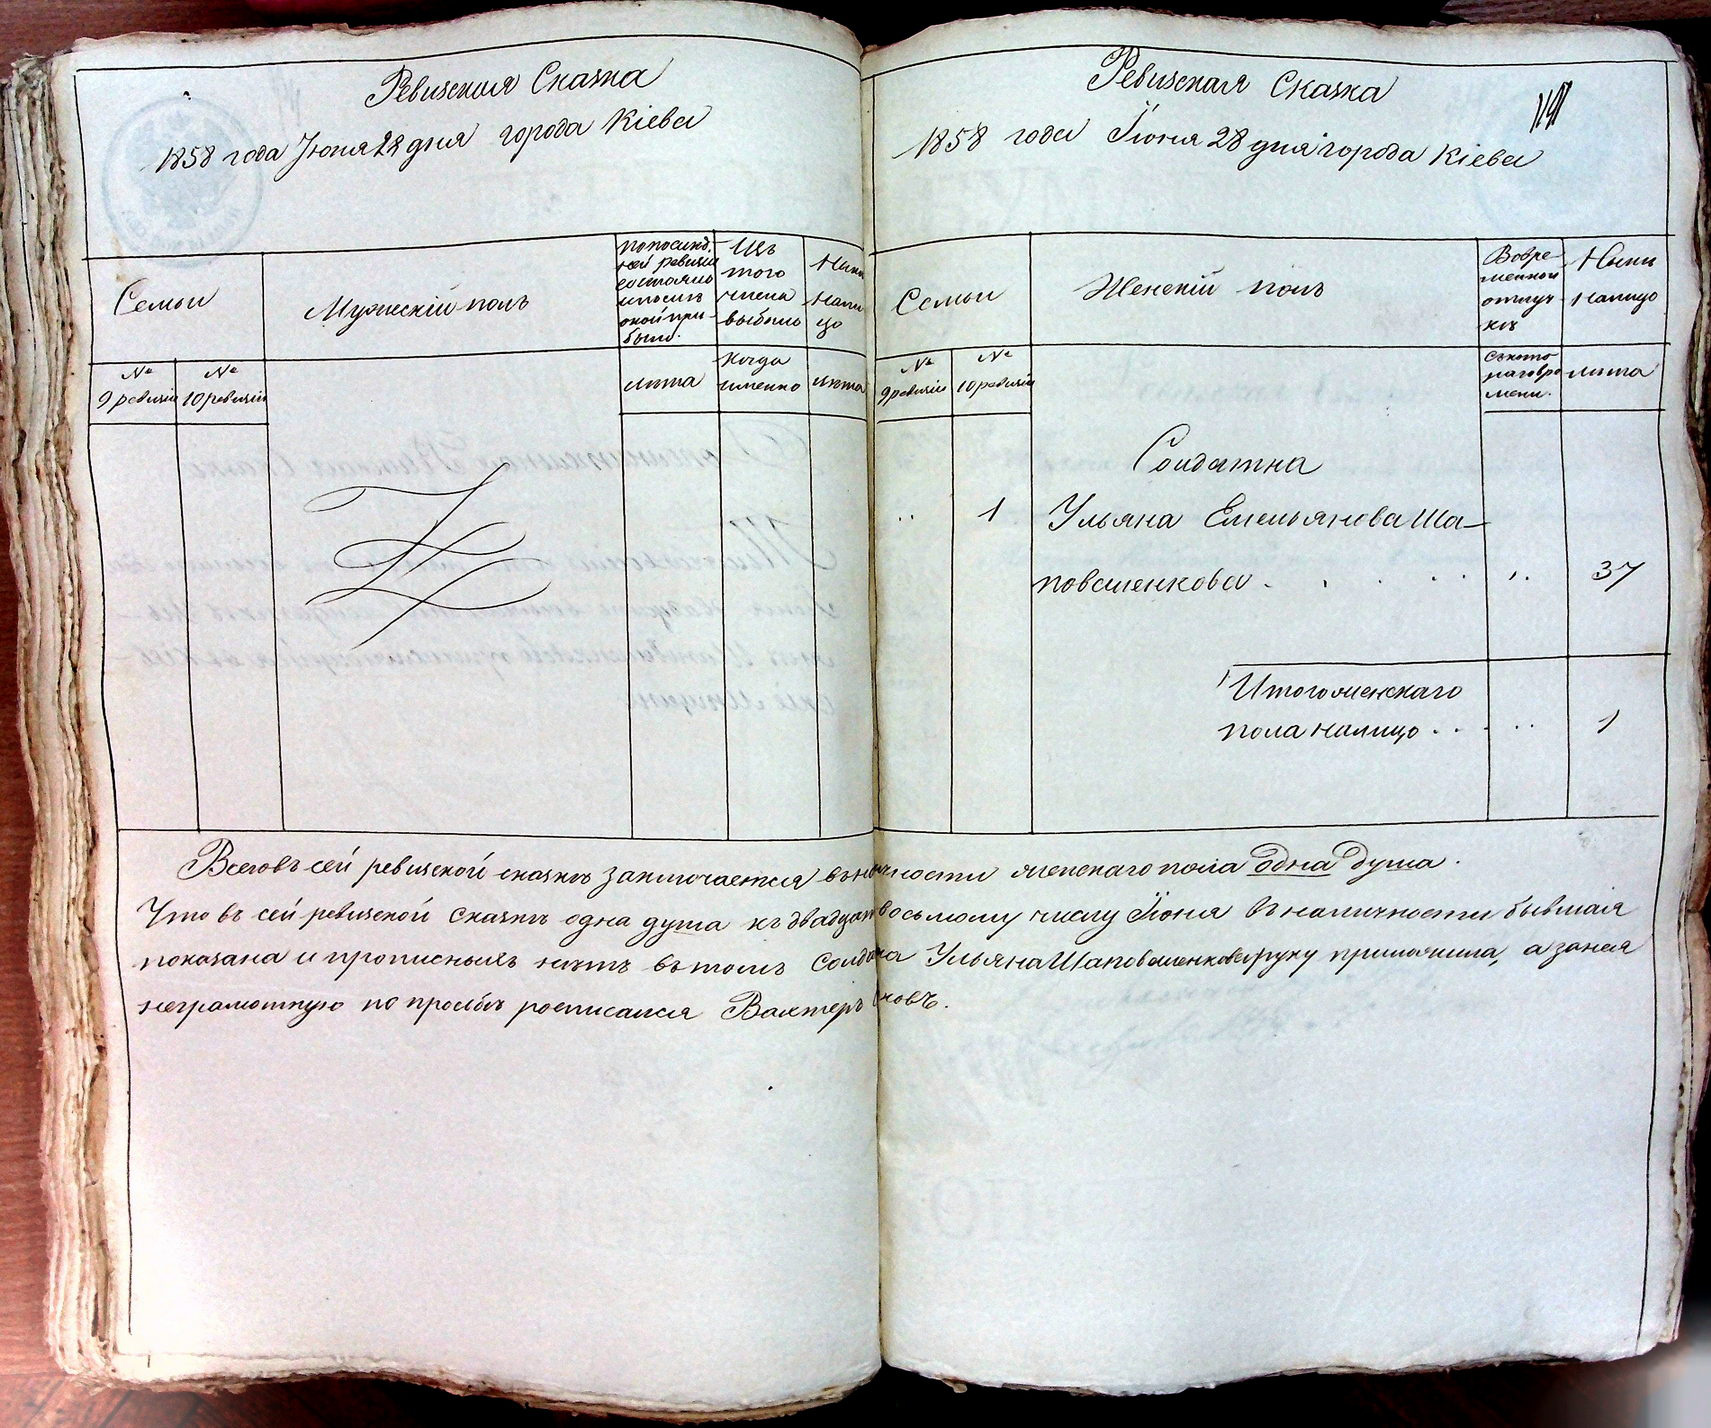 Ревизская Сказка
1858 года Іюня 28 дня города Кіева
Семьи
Мужескій полъ
По послед
ней ревизіи
состояло
и после
оной при
было.
Изъ
того
числа
выбыло
Ныне
нали
цо
№
9 ревизіи
№
10 ревизіи
лѣта
Когда
именно
лѣта
Ревизская Сказка
1858 года Іюня 28 дня города Кіева
Семьи
Женскій полъ
Во вре-
менной
отлуч
кѣ
Ныне
налицо
№
9 ревизіи
№
10 ревизіи
съ кото
раго вре
мени.
лѣта
Солдатка
1 Ульяна Емельянова Ша-
поваленкова . . . . . 37
Итого женскаго
пола налицо . . . . 1
Всего въ сей ревизской сказкѣ заключается въ наличности женскаго пола одна душа.
Что въ сей ревизской сказкѣ одна душа къ двадцать восьмому числу Іюня въ наличности бывшая
показана и прописныхъ нѣтъ въ томъ Солдатка Ульяна Шаповаленкова руку приложила, а за нея
неграмотную по прозьбѣ росписался Вахтеръ